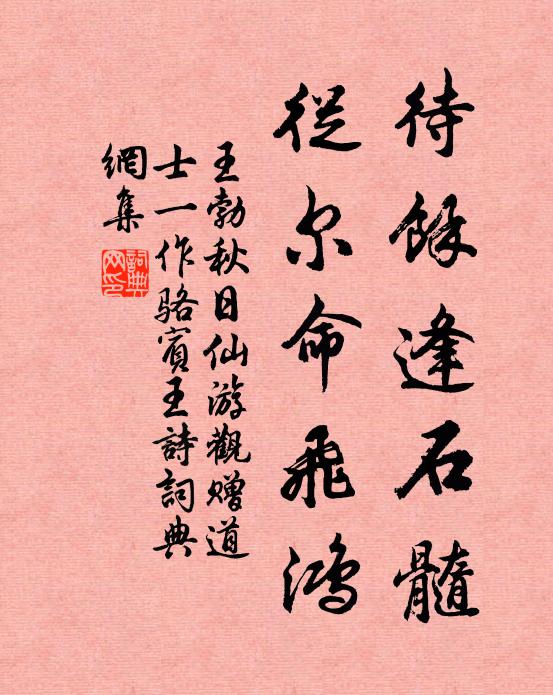 待餘逢石髓
從尔命飛鴻
王勃秋日仙游觀贈道
士一作駱賓王詩詞典
網集
詞典網印